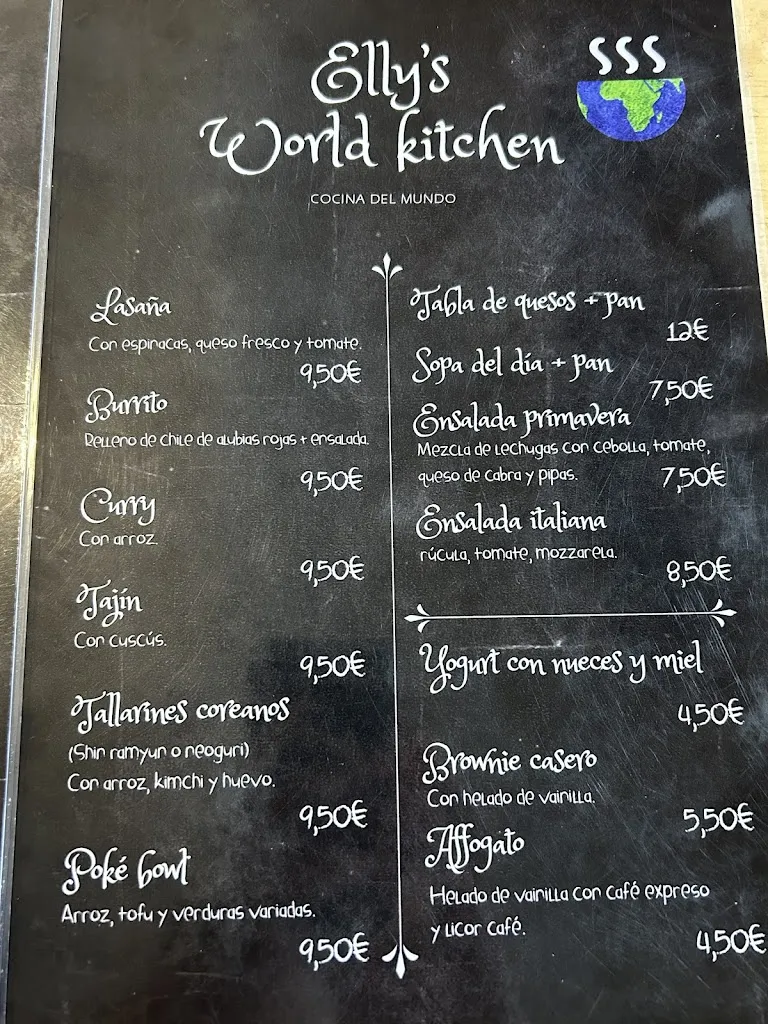 Elly's
World kitchen
COCINA DEL MUNDO
Lasaña
Con espinacas, queso fresco y tomate.
9,50€
Burrito
Relleno de chile de alubias rojas + ensalada.
9,50€
Curry
Con arroz.
9,50€
Tajín
Con cuscús.
9,50€
Tallarines coreanos
(Shin ramyun o neoguri)
Con arroz, kimchi y huevo.
9,50€
Poké bowl
Arroz, tofu y verduras variadas.
9,50€
Tabla de quesos + pan
12€
Sopa del día + pan
7,50€
Ensalada primavera
Mezcla de lechugas con cebolla, tomate,
queso de cabra y pipas.
7,50€
Ensalada italiana
rúcula, tomate, mozzarela.
8,50€
Yogurt con nueces y miel
4,50€
Brownie casero
Con helado de vainilla.
5,50€
Affogato
Helado de vainilla con café expreso
y licor café.
4,50€